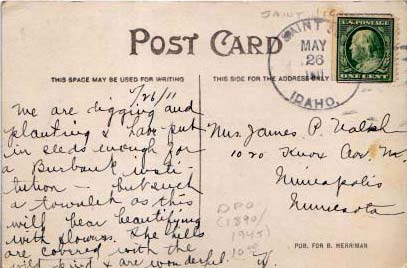 SAINT JOE
POST CARD
SAINT J
MAY
26
IDAHO.
U.S. POSTAGE
ONE CENT
THIS SPACE MAY BE USED FOR WRITING
THIS SIDE FOR THE ADDRESS ONLY
/26/11
We are digging and
planting & have put
in seeds enough for
a Burbank insti-
tution — but such
a townsite as this
will bear beautifying
with flowers. The hills
are covered with the
wild kind & are wonderful.
Mrs. James P. Walsh
1020 Knox Ave. No.
Minneapolis
Minnesota
DPO
(1890/
1945)
PUB. FOR B. MERRIMAN